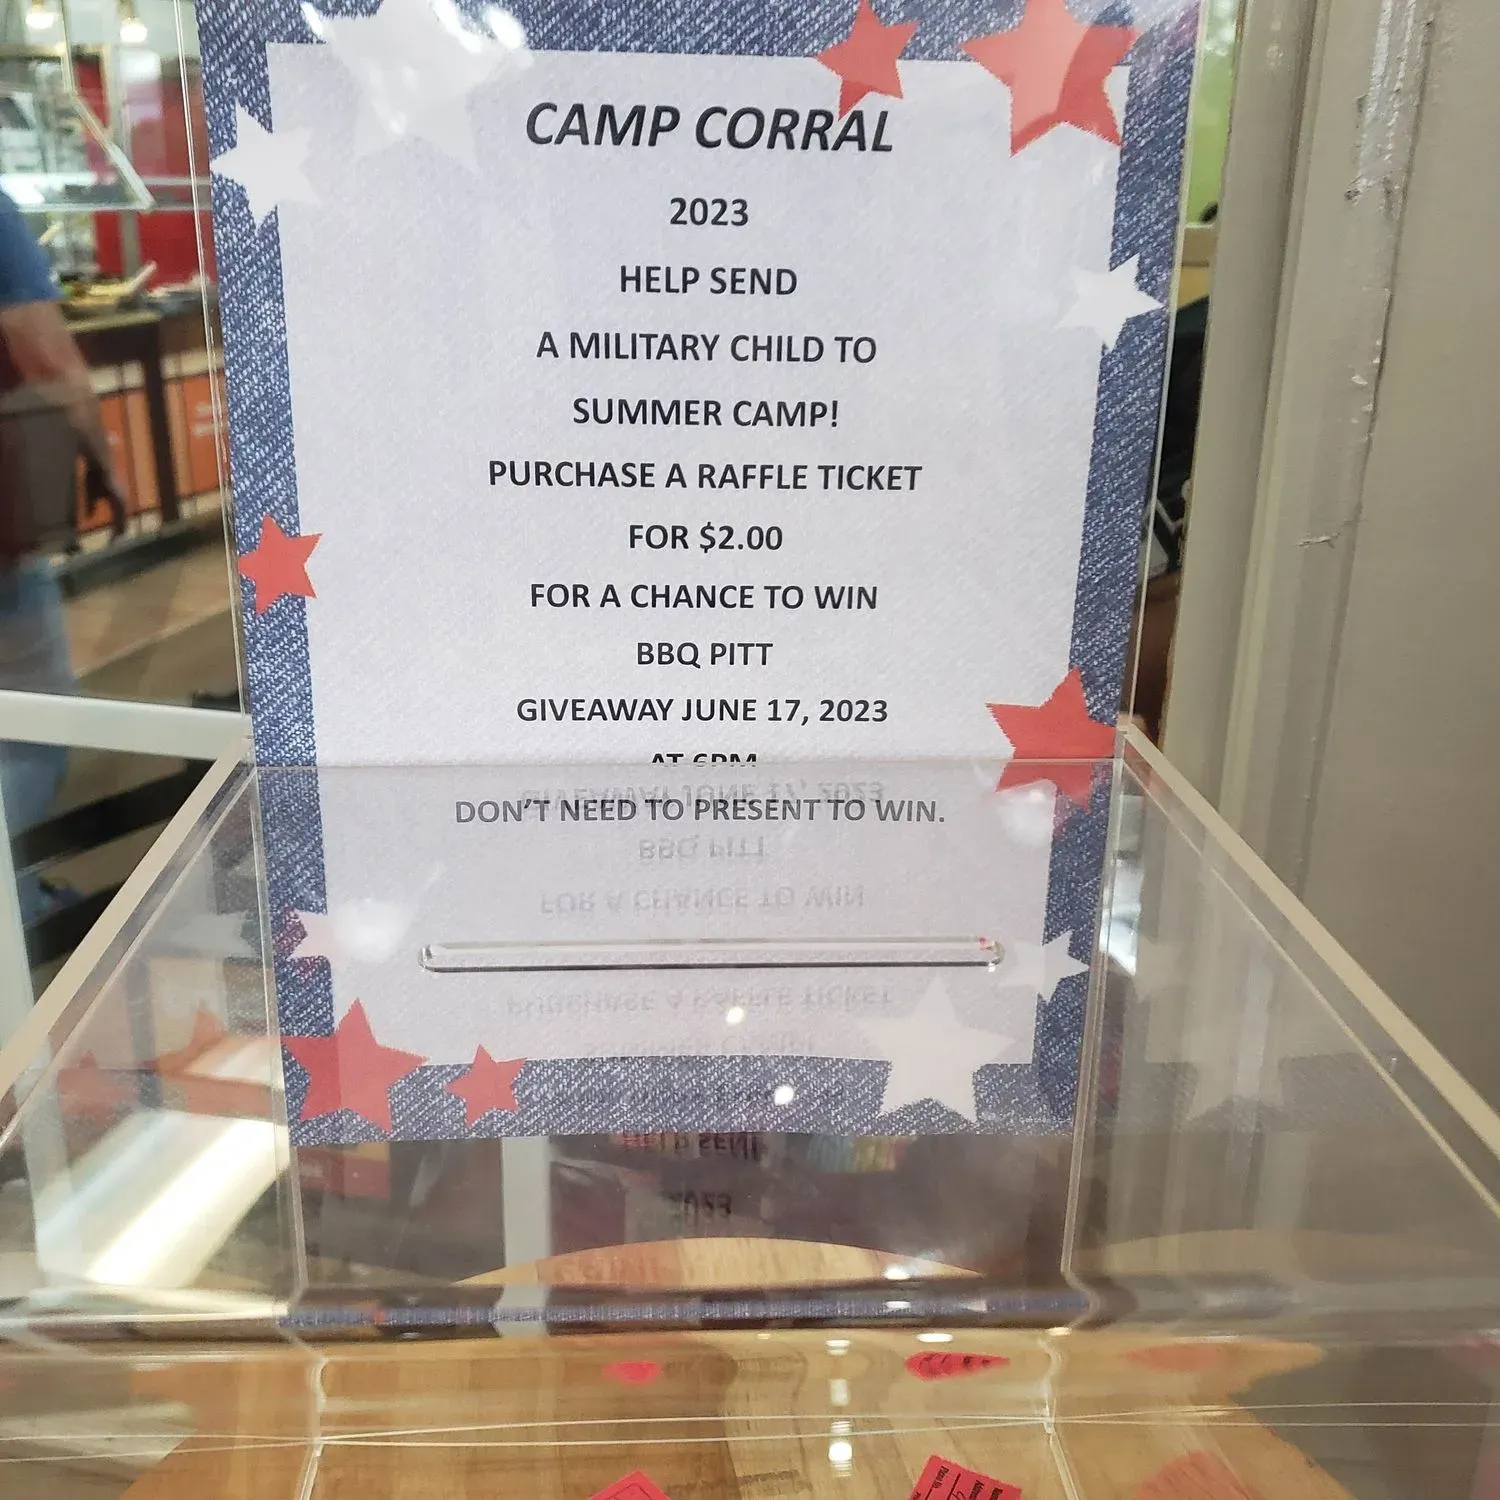 CAMP CORRAL
2023
HELP SEND
A MILITARY CHILD TO
SUMMER CAMP!
PURCHASE A RAFFLE TICKET
FOR $2.00
FOR A CHANCE TO WIN
BBQ PITT
GIVEAWAY JUNE 17, 2023
AT 6PM
DON'T NEED TO PRESENT TO WIN.